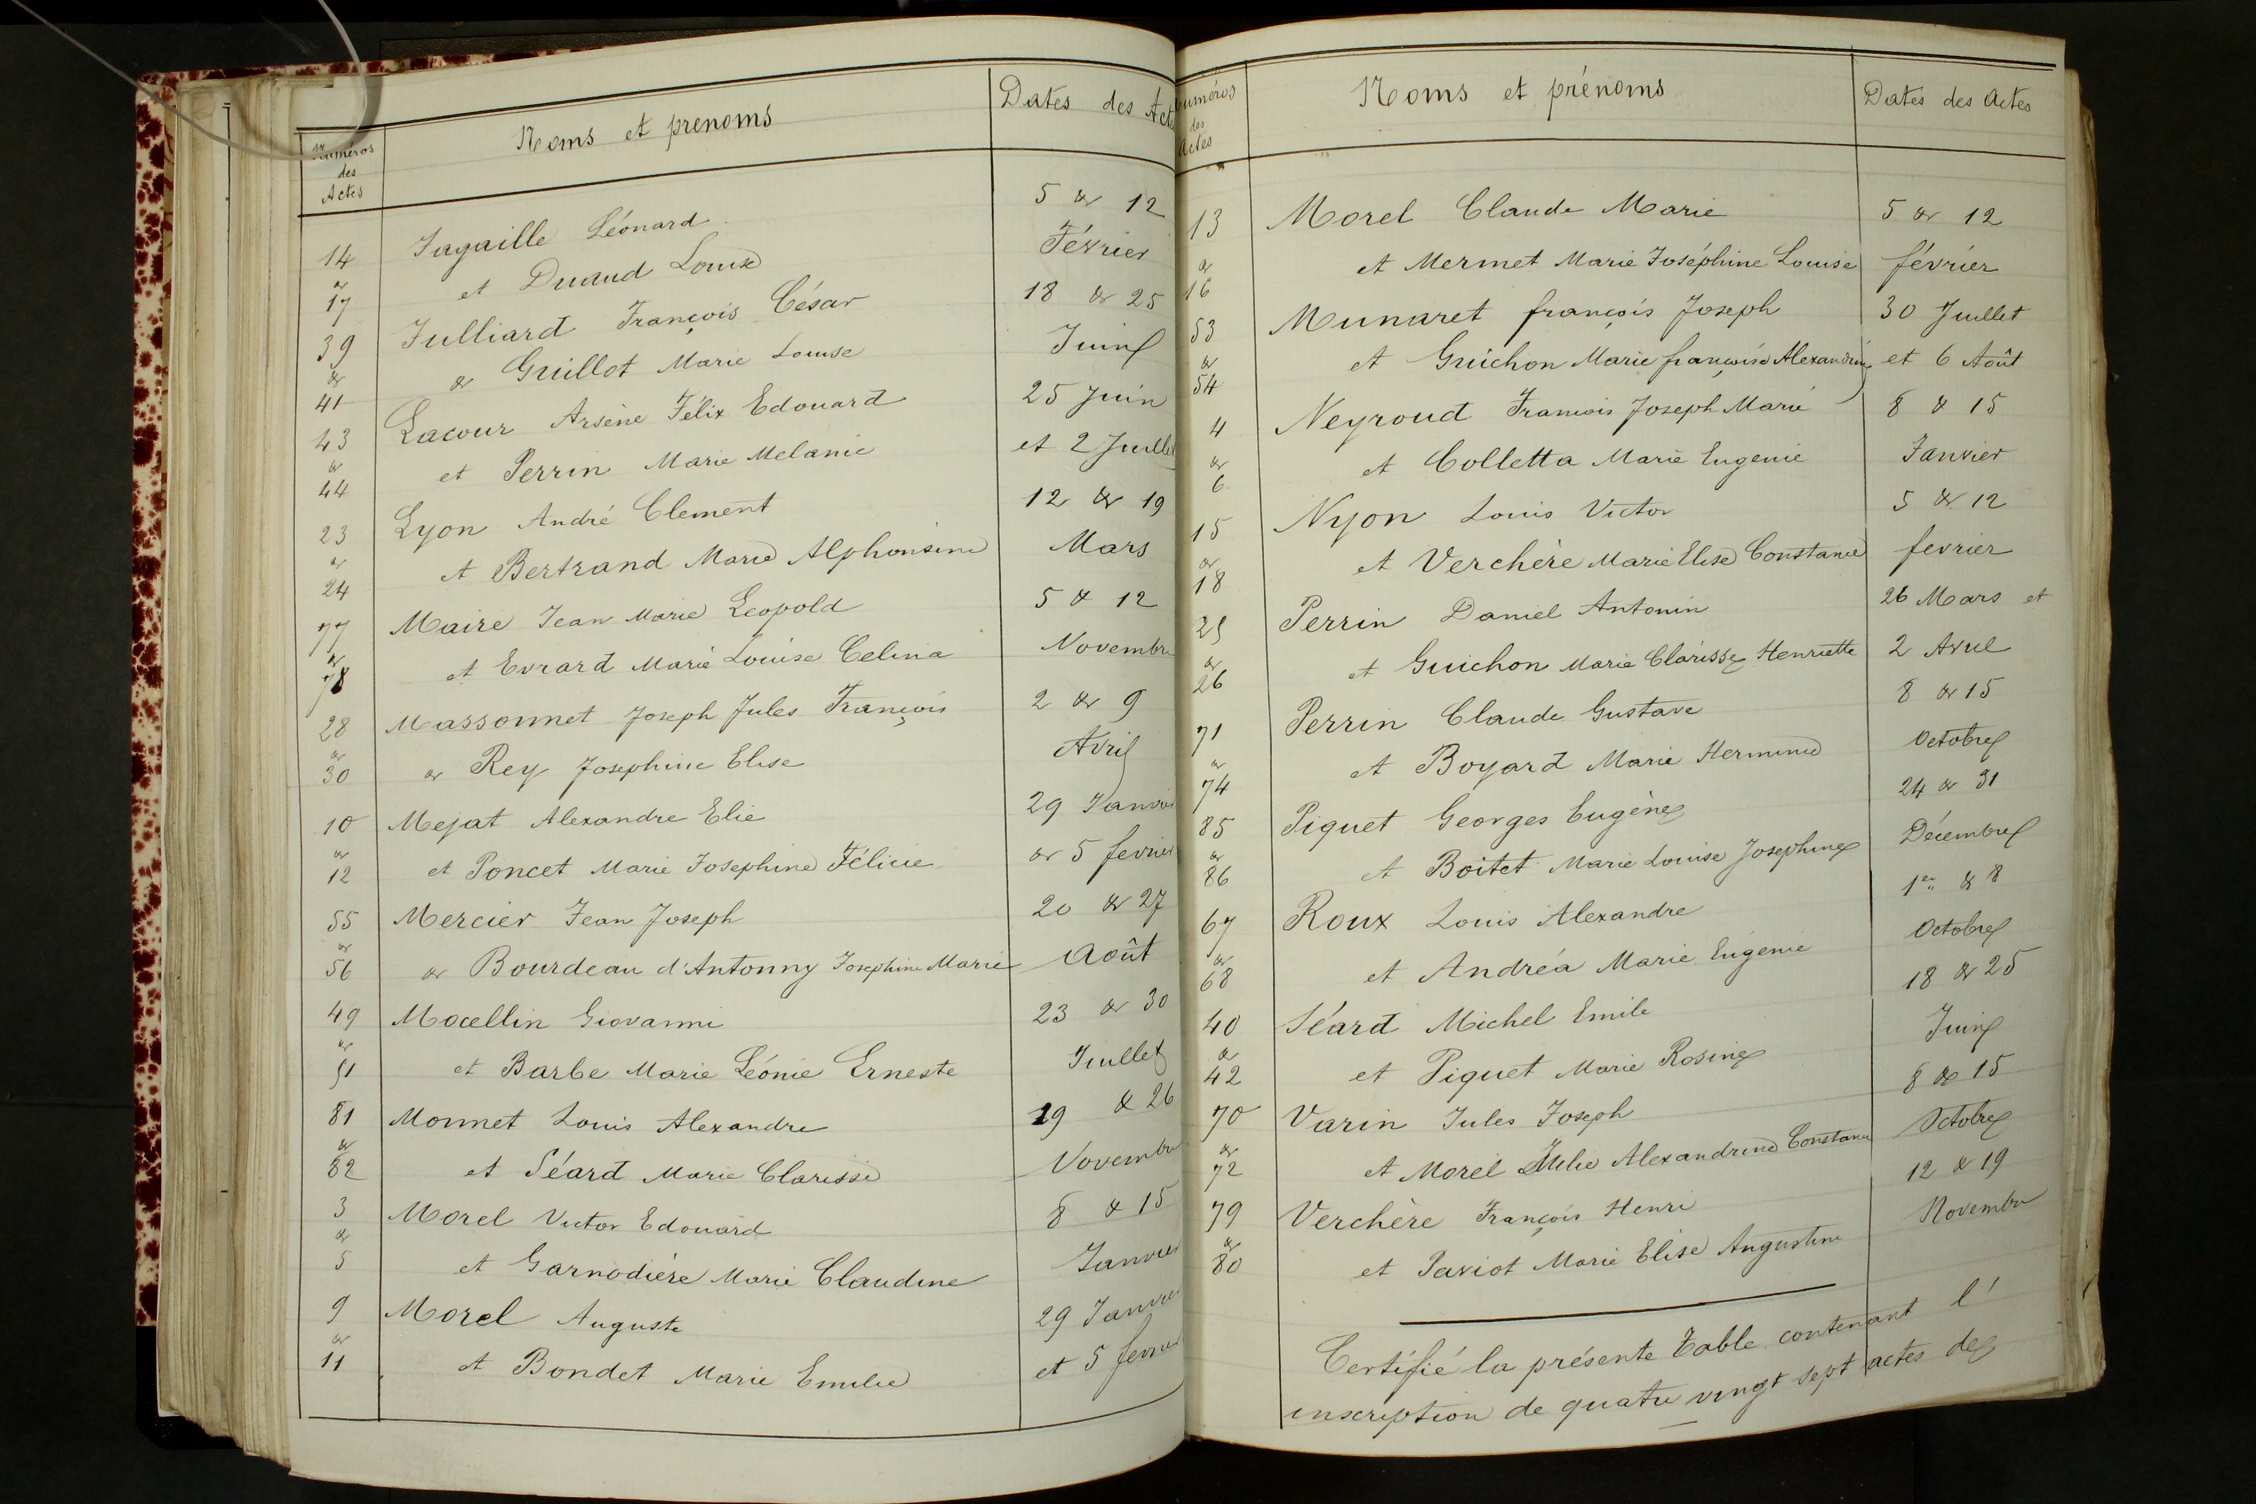 Numéros des Actes | Noms et prenoms | Dates des Act
14 Jagaille Léonard 5 & 12
& 17 et Duaud Louise Février
39 Julliard François César 18 & 25
& 41 & Guillot Marie Louise Juin
43 Lacour Arsène Félix Edouard 25 Juin
& 44 et Perrin Marie Melanie et 2 Juillet
23 Lyon André Clement 12 & 19
& 24 et Bertrand Marie Alphonsine Mars
77 Maire Jean Marie Leopold 5 & 12
& 78 et Evrard Marie Louise Celina Novembre
28 Massonnet Joseph Jules François 2 & 9
& 30 & Rey Josephine Elise Avril
10 Mejat Alexandre Elie 29 Janvier
& 12 et Poncet Marie Josephine Félicie & 5 fevrier
55 Mercier Jean Joseph 20 & 27
& 56 & Bourdeau d'Antonny Josephine Marie Août
49 Mocellin Giovanni 23 & 30
& 51 et Barbe Marie Léonie Erneste Juillet
81 Monnet Louis Alexandre 19 & 26
& 82 et Séard Marie Clarisse Novembre
3 Morel Victor Edouard 8 & 15
& 5 et Garnodière Marie Claudine Janvier
9 Morel Auguste 29 Janvier
& 11 et Bondet Marie Emilie et 5 fevrier
Numéros des Actes | Noms et prénoms | Dates des Actes
13 Morel Claude Marie 5 & 12
& 16 et Mermet Marie Joséphine Louise février
53 Munaret françois Joseph 30 Juillet
& 54 et Guichon Marie françoise Alexandrine et 6 Août
4 Neyroud Francois Joseph Marie 8 & 15
& 6 et Colletta Marie Eugenie Janvier
15 Nyon Louis Victor 5 & 12
& 18 et Verchère Marie Elise Constance fevrier
25 Perrin Daniel Antonin 26 Mars et
& 26 et Guichon Marie Clarisse Henriette 2 Avril
71 Perrin Claude Gustave 8 & 15
& 74 et Boyard Marie Hermine Octobre
85 Piquet Georges Eugène 24 & 31
& 86 et Boitet Marie Louise Josephine Décembre
67 Roux Louis Alexandre 1er & 8
& 68 et Andréa Marie Eugénie Octobre
40 Séard Michel Emile 18 & 25
& 42 et Piquet Marie Rosine Juin
70 Varin Jules Joseph 8 & 15
& 72 et Morel Alexandrine Constance Octobre
79 Verchère François Henri 12 & 19
& 80 et Paviot Marie Elise Augustine Novembre
Certifié la présente Table contenant l'
inscription de quatre vingt sept actes de